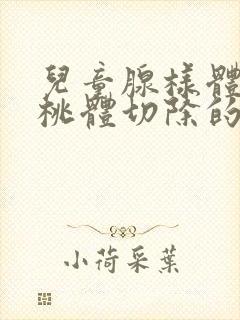 兒童腺樣體
桃體切除的
小荷采葉